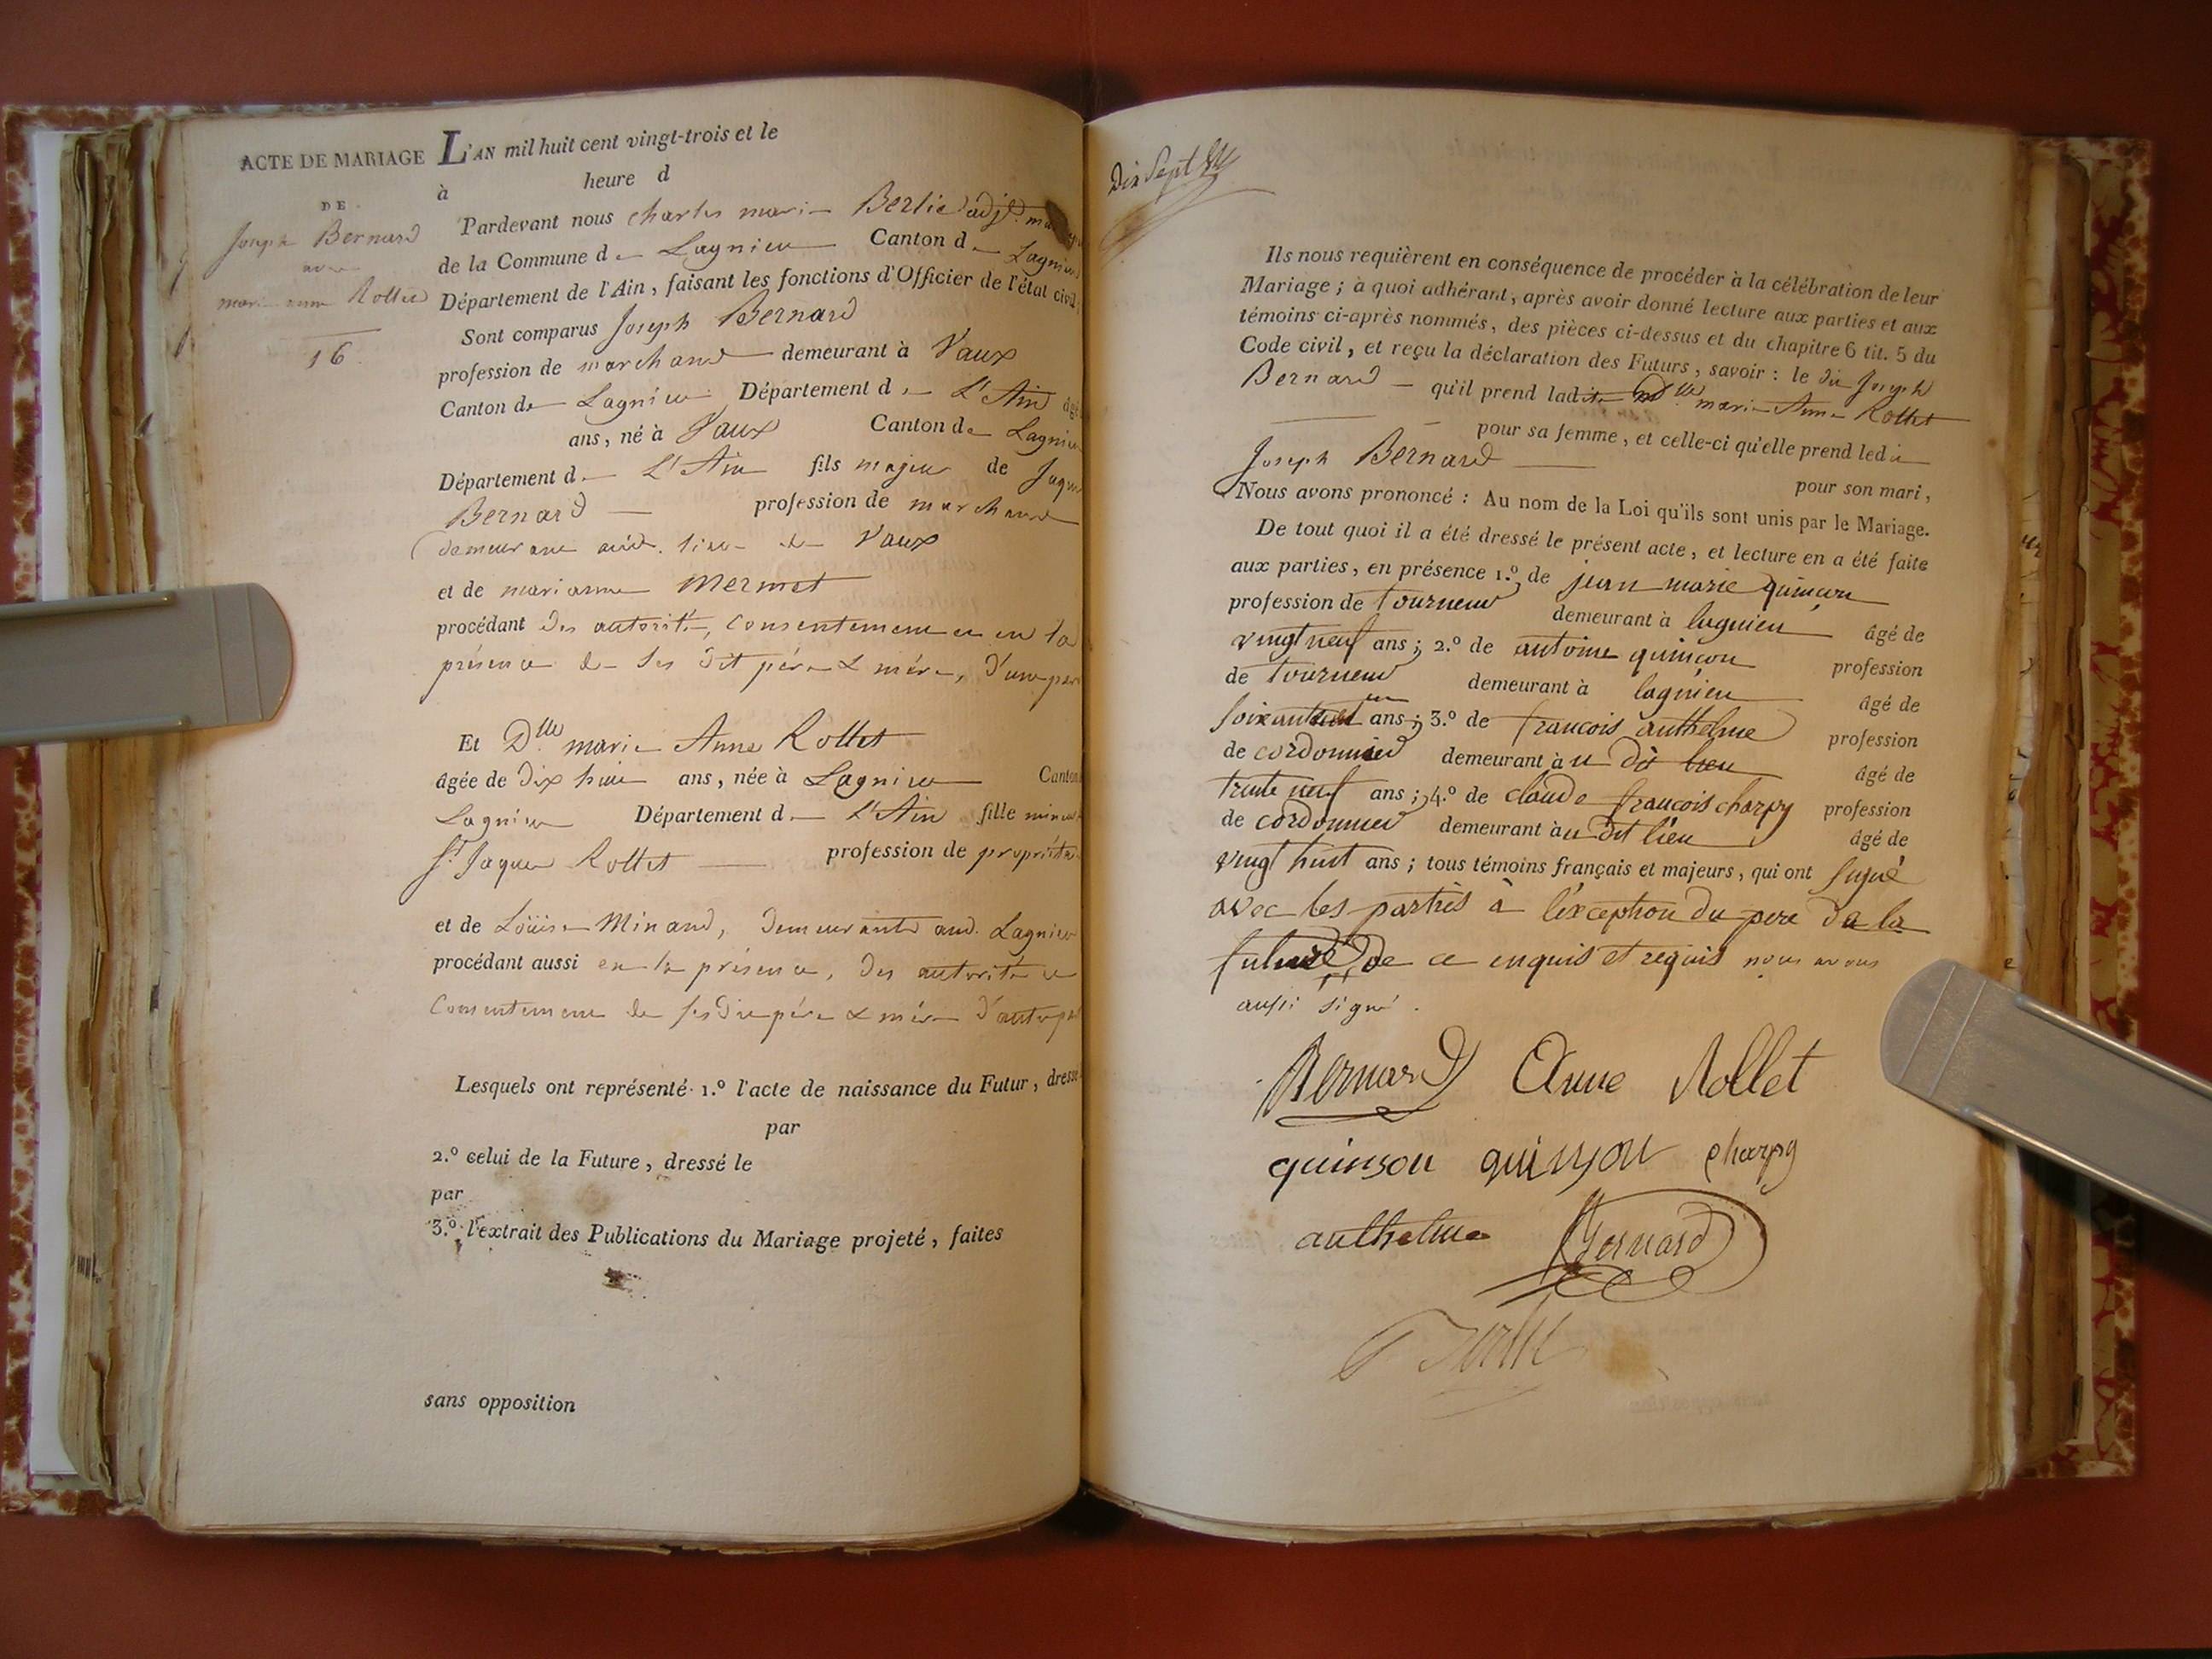 ACTE DE MARIAGE
DE
Joseph Bernard
avec
marie anne Rollet
16
L'AN mil huit cent vingt-trois et le
à heure d
Pardevant nous charles marie Berlie adjt.
de la Commune de Lagnieu Canton de Lagnieu
Département de l'Ain, faisant les fonctions d'Officier de l'état civil
Sont comparus Joseph Bernard
profession de marchand demeurant à Vaux
Canton de Lagnieu Département de L'Ain âgé
ans, né à Vaux Canton de Lagnieu
Département de L'Ain fils majeur de Jaques
Bernard profession de marchand
demeurant aud. lieu de Vaux
et de marianne Mermet
procédant des autorité, Consentement et en la
présence de ses dit père & mère, d'une part
Et Dlle marie Anne Rollet
âgée de Dix huit ans, née à Lagnieu Canton
Lagnieu Département de L'Ain fille mineure
Sr. Jaques Rollet profession de propriétaire
et de Loüise Minand, demeurants aud. Lagnieu
procédant aussi en la présence, des autorité et
Consentement de ses dit père & mère d'autre part
Lesquels ont représenté 1.º l'acte de naissance du Futur, dressé
par
2.º celui de la Future, dressé le
par
3.º l'extrait des Publications du Mariage projeté, faites
sans opposition
Dix Sept
Ils nous requièrent en conséquence de procéder à la célébration de leur
Mariage ; à quoi adhérant, après avoir donné lecture aux parties et aux
témoins ci-après nommés, des pièces ci-dessus et du chapitre 6 tit. 5 du
Code civil, et reçu la déclaration des Futurs, savoir : le dit Joseph
Bernard qu'il prend ladite Dlle marie Anne Rollet
pour sa femme, et celle-ci qu'elle prend ledit
Joseph Bernard pour son mari,
Nous avons prononcé : Au nom de la Loi qu'ils sont unis par le Mariage.
De tout quoi il a été dressé le présent acte, et lecture en a été faite
aux parties, en présence 1.º de jean marie quinçon
profession de tourneur demeurant à lagnieu âgé de
vingt neuf ans ; 2.º de antoine quinçon profession
de tourneur demeurant à lagnieu âgé de
soixante un ans ; 3.º de francois anthelme profession
de cordonnier demeurant au dit lieu âgé de
trente neuf ans ; 4.º de claude francois charpy profession
de cordonnier demeurant au dit lieu âgé de
vingt huit ans ; tous témoins français et majeurs, qui ont signé
avec les parties à l'exception du pere de la
future de ce enquis et requis nous avons
aussi signé.
Bernard Anne Rollet
quinson quinson charpy
anthelme Bernard
Berlie